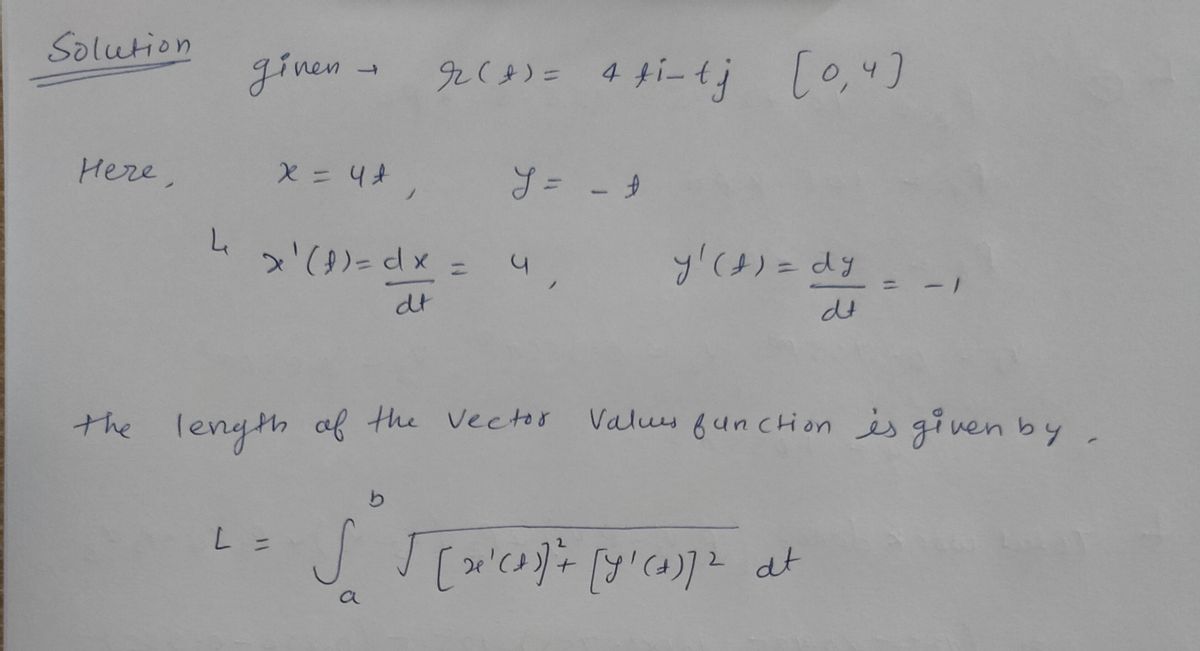 Solution
given → r(t) = 4ti - tj [0,4]
Here, x = 4t, y = -t
↳ x'(t) = dx/dt = 4, y'(t) = dy/dt = -1
the length of the vector Values function is given by.
L = ∫_a^b √([x'(t)]² + [y'(t)]²) dt